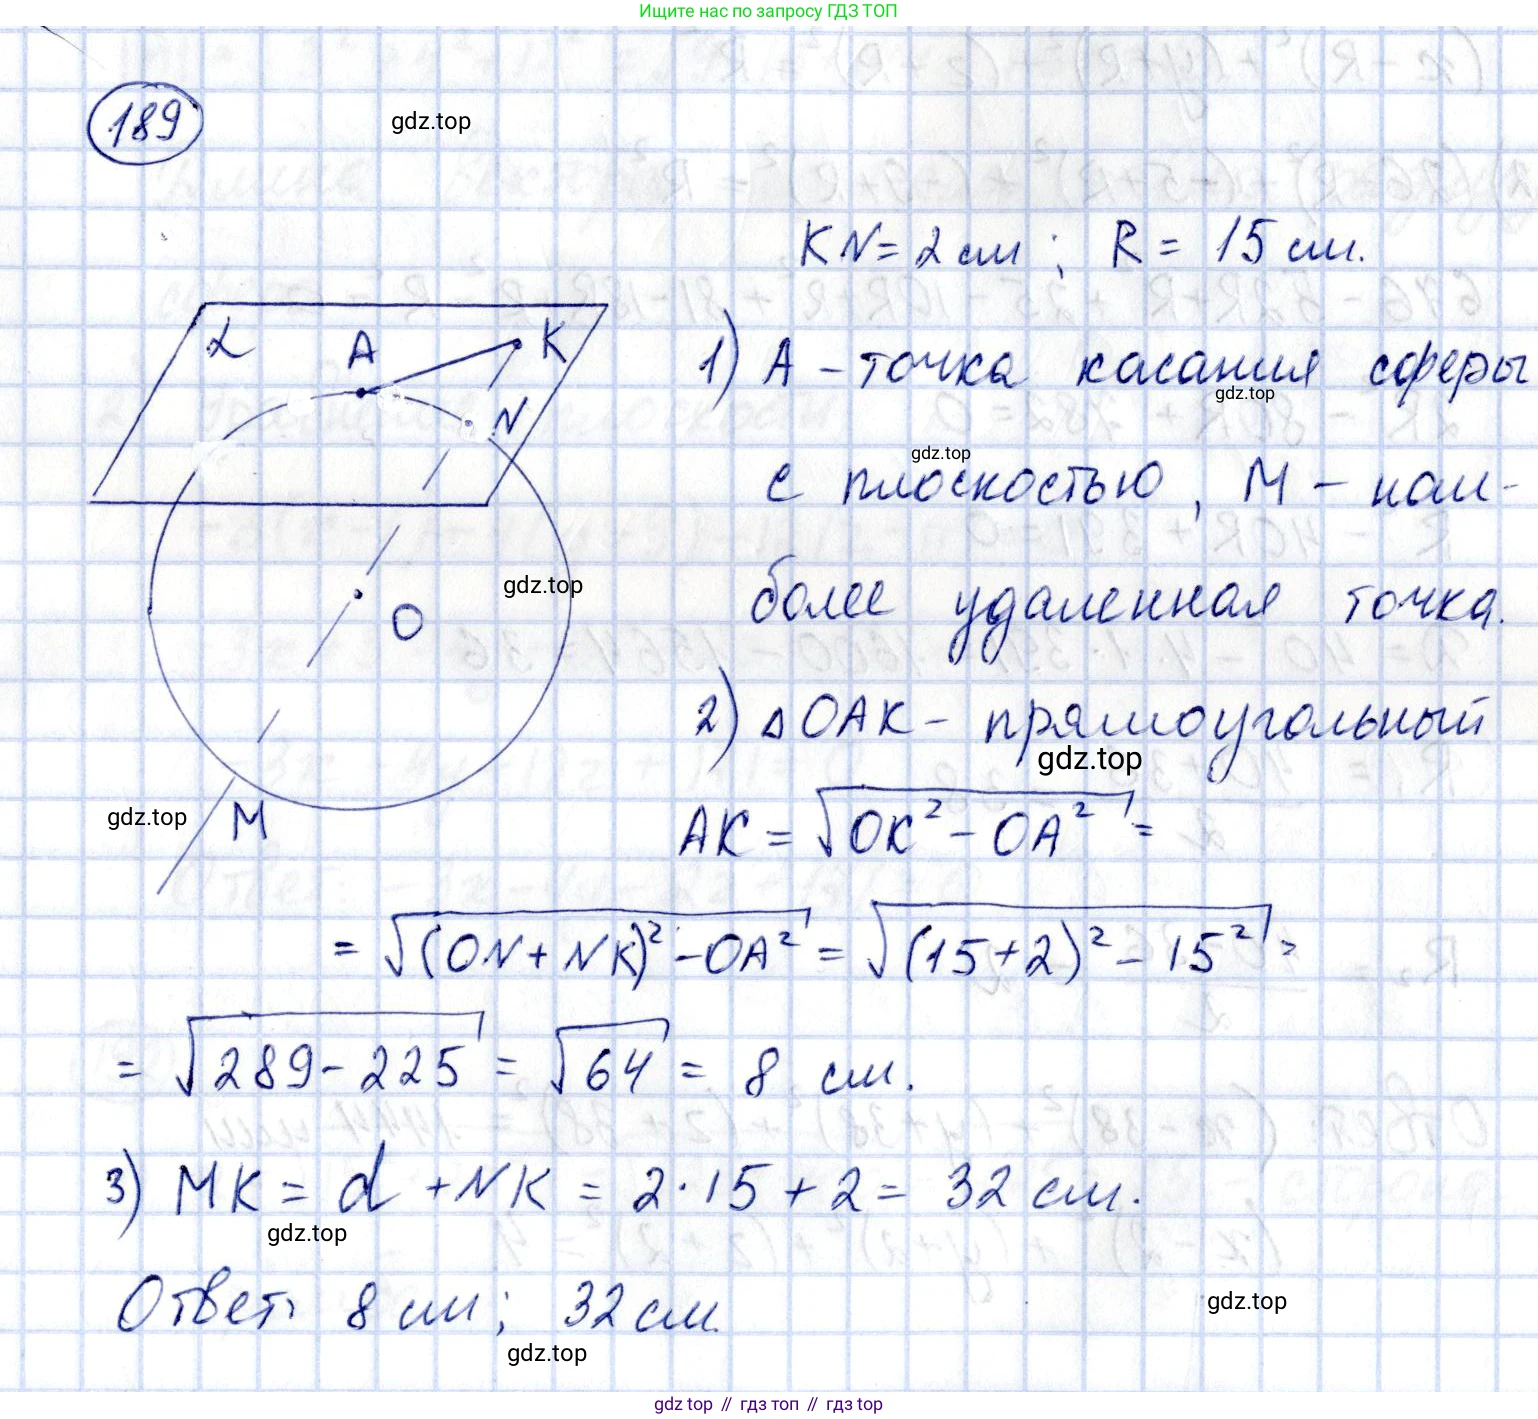 Ищите нас по запросу ГДЗ ТОП
189
gdz.top
KN = 2 см ; R = 15 см.
α A K
N
O
M
1) A - точка касания сферы
gdz.top
gdz.top
с плоскостью, M - наи-
gdz.top
более удаленная точка.
2) △OAK - прямоугольный
gdz.top
gdz.top
AK = √(OK² - OA²) =
= √((ON + NK)² - OA²) = √((15+2)² - 15²) =
= √(289 - 225) = √64 = 8 см.
3) MK = d + NK = 2·15 + 2 = 32 см.
gdz.top
Ответ: 8 см; 32 см.
gdz.top
gdz.top
gdz top // гдз топ // гдз top